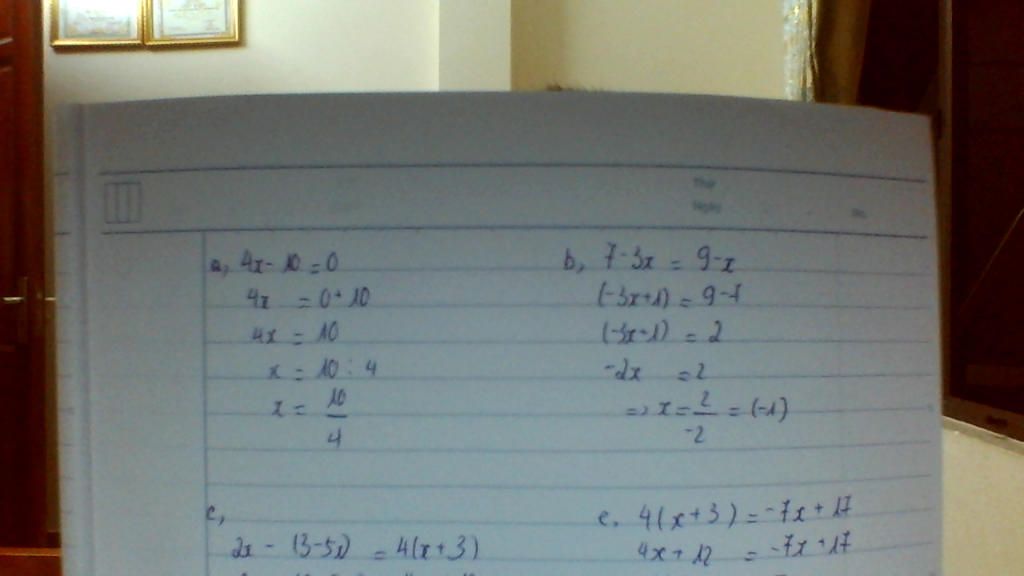 Thứ
Ngày
No.
a, 4x - 10 = 0
4x = 0 + 10
4x = 10
x = 10 : 4
x = 10/4
b, 7 - 3x = 9 - x
(-3x+1) = 9 - 7
(-3x+1) = 2
-2x = 2
=> x = 2/-2 = (-1)
c,
2x - (3-5x) = 4(x+3)
e. 4(x+3) = -7x + 17
4x + 12 = -7x + 17